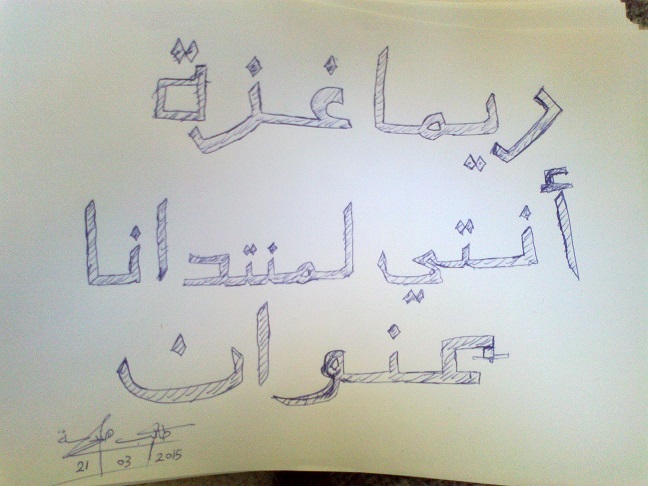 ريما غزة
أنتي لمنتدانا
عنوان
21 03 2015